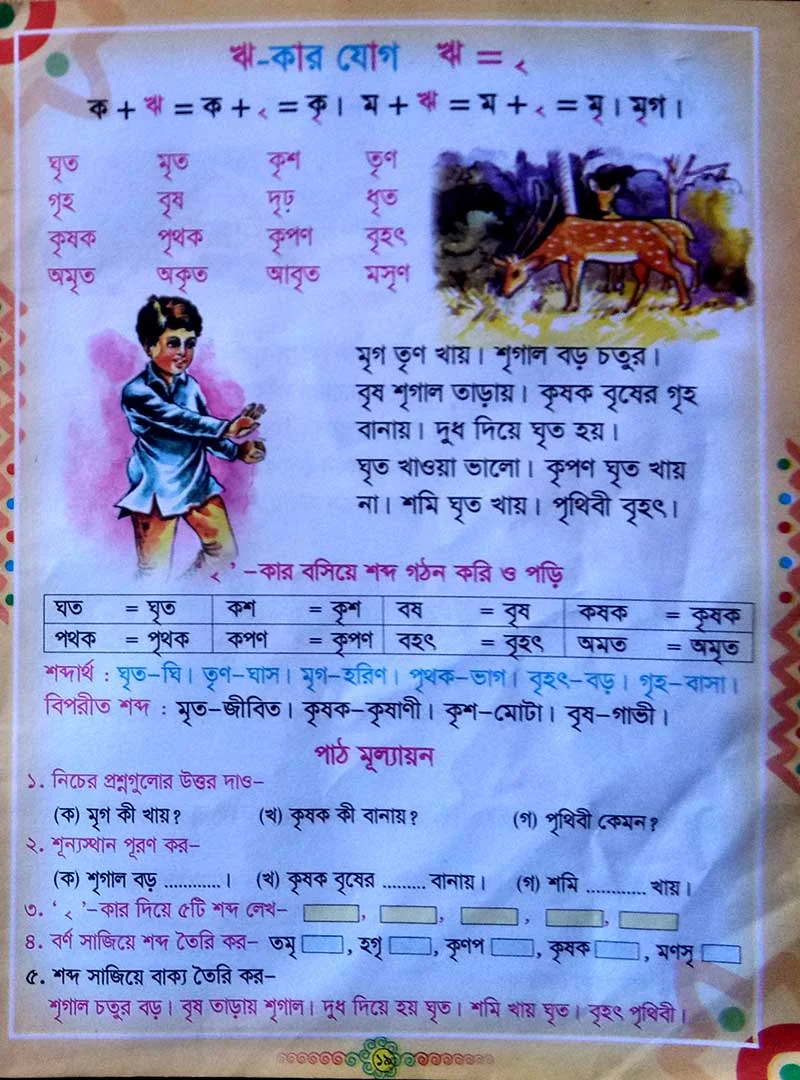 ঋ-কার যোগ ঋ = ৃ
ক + ঋ = ক + ৃ = কৃ। ম + ঋ = ম + ৃ = মৃ। মৃগ।
ঘৃত মৃত কৃশ তৃণ
গৃহ বৃষ দৃঢ় ধৃত
কৃষক পৃথক কৃপণ বৃহৎ
অমৃত অকৃত আবৃত মসৃণ
মৃগ তৃণ খায়। শৃগাল বড় চতুর।
বৃষ শৃগাল তাড়ায়। কৃষক বৃষের গৃহ
বানায়। দুধ দিয়ে ঘৃত হয়।
ঘৃত খাওয়া ভালো। কৃপণ ঘৃত খায়
না। শমি ঘৃত খায়। পৃথিবী বৃহৎ।
ৃ ’-কার বসিয়ে শব্দ গঠন করি ও পড়ি
ঘত = ঘৃত কশ = কৃশ বষ = বৃষ কষক = কৃষক
পথক = পৃথক কপণ = কৃপণ বহৎ = বৃহৎ অমত = অমৃত
শব্দার্থ : ঘৃত-ঘি। তৃণ-ঘাস। মৃগ-হরিণ। পৃথক-ভাগ। বৃহৎ-বড়। গৃহ-বাসা।
বিপরীত শব্দ : মৃত-জীবিত। কৃষক-কৃষাণী। কৃশ-মোটা। বৃষ-গাভী।
পাঠ মূল্যায়ন
১. নিচের প্রশ্নগুলোর উত্তর দাও-
(ক) মৃগ কী খায়? (খ) কৃষক কী বানায়? (গ) পৃথিবী কেমন?
২. শূন্যস্থান পূরণ কর-
(ক) শৃগাল বড় ............। (খ) কৃষক বৃষের ......... বানায়। (গ) শমি ............ খায়।
৩. ‘ ৃ ’-কার দিয়ে ৫টি শব্দ লেখ- , , , ,
৪. বর্ণ সাজিয়ে শব্দ তৈরি কর- তমৃ , হগৃ , কৃণপ , কৃষক , মণসৃ
৫. শব্দ সাজিয়ে বাক্য তৈরি কর-
শৃগাল চতুর বড়। বৃষ তাড়ায় শৃগাল। দুধ দিয়ে হয় ঘৃত। শমি খায় ঘৃত। বৃহৎ পৃথিবী।